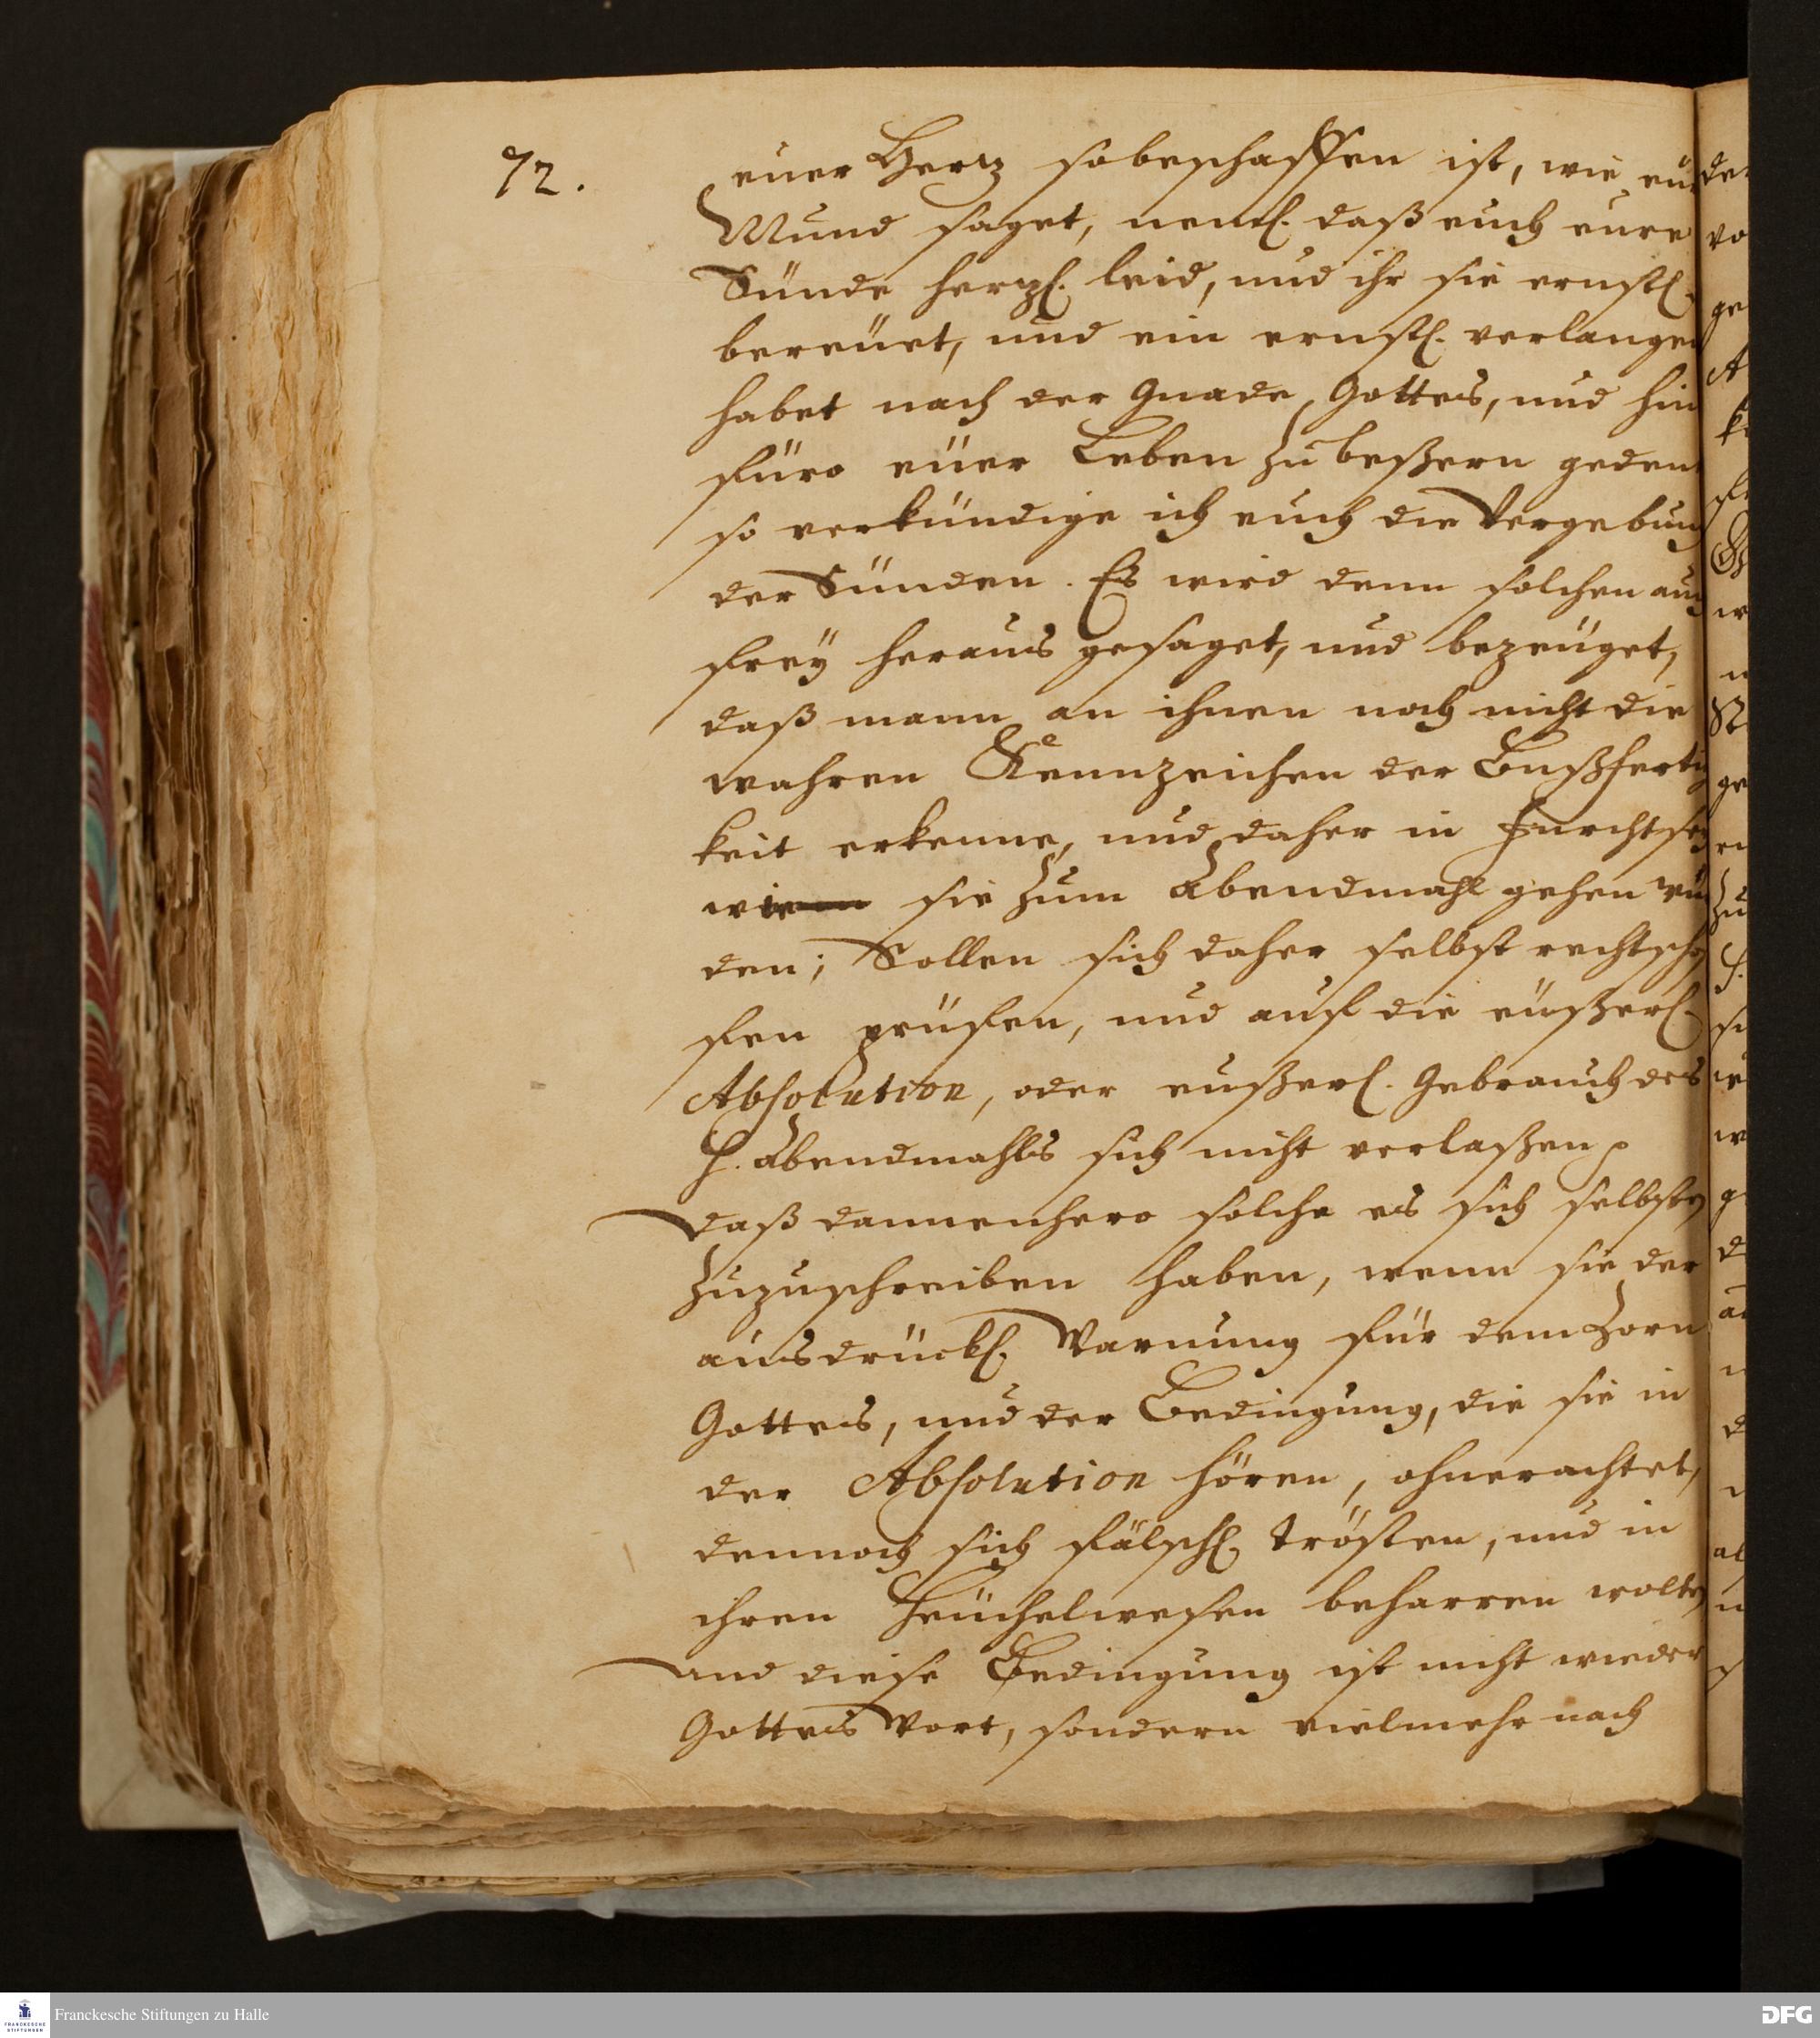 72.
euer Hertz so beschaffen ist, wie eür
Mund saget, nentl. daß euch eure
Sünde hertzl. leid, und ihr sie ernstl.
bereüet, und ein ernstl. verlangen
habet nach der Gnade Gottes, und hin
füro eüer Leben zu beßern geden
so verkündige ich euch die Vergebung
der Sünden. Es wird denn solchen auch
frey heraus gesaget, und bezeüget,
daß mann an ihnen noch nicht die
wahren Kennzeichen der Bußfertig
keit erkenne, und daher in Furcht sey
wie sie zum Abendmahl gehen wür
den; Sollen sich daher selbst rechtschaf
fen prüfen, und auf die eüßerl.
Absolution, oder eußerl. Gebrauch des
H. Abendmahls sich nicht verlaßen
daß dannenhero solche es sich selbsten
zuzuschreiben haben, wenn sie der
ausdrückl. Warnung für dem Zorn
Gottes, und der Bedingung, die sie in
der Absolution hören, ohnerachtet,
dennoch sich fälschl. trösten, und in
ihren Heüchelwesen beharren wolten
und diese Bedingung ist nicht wieder
Gottes Wort, sondern vielmehr nach
Franckesche Stiftungen zu Halle
FRANCKESCHE
STIFTUNGEN
DFG